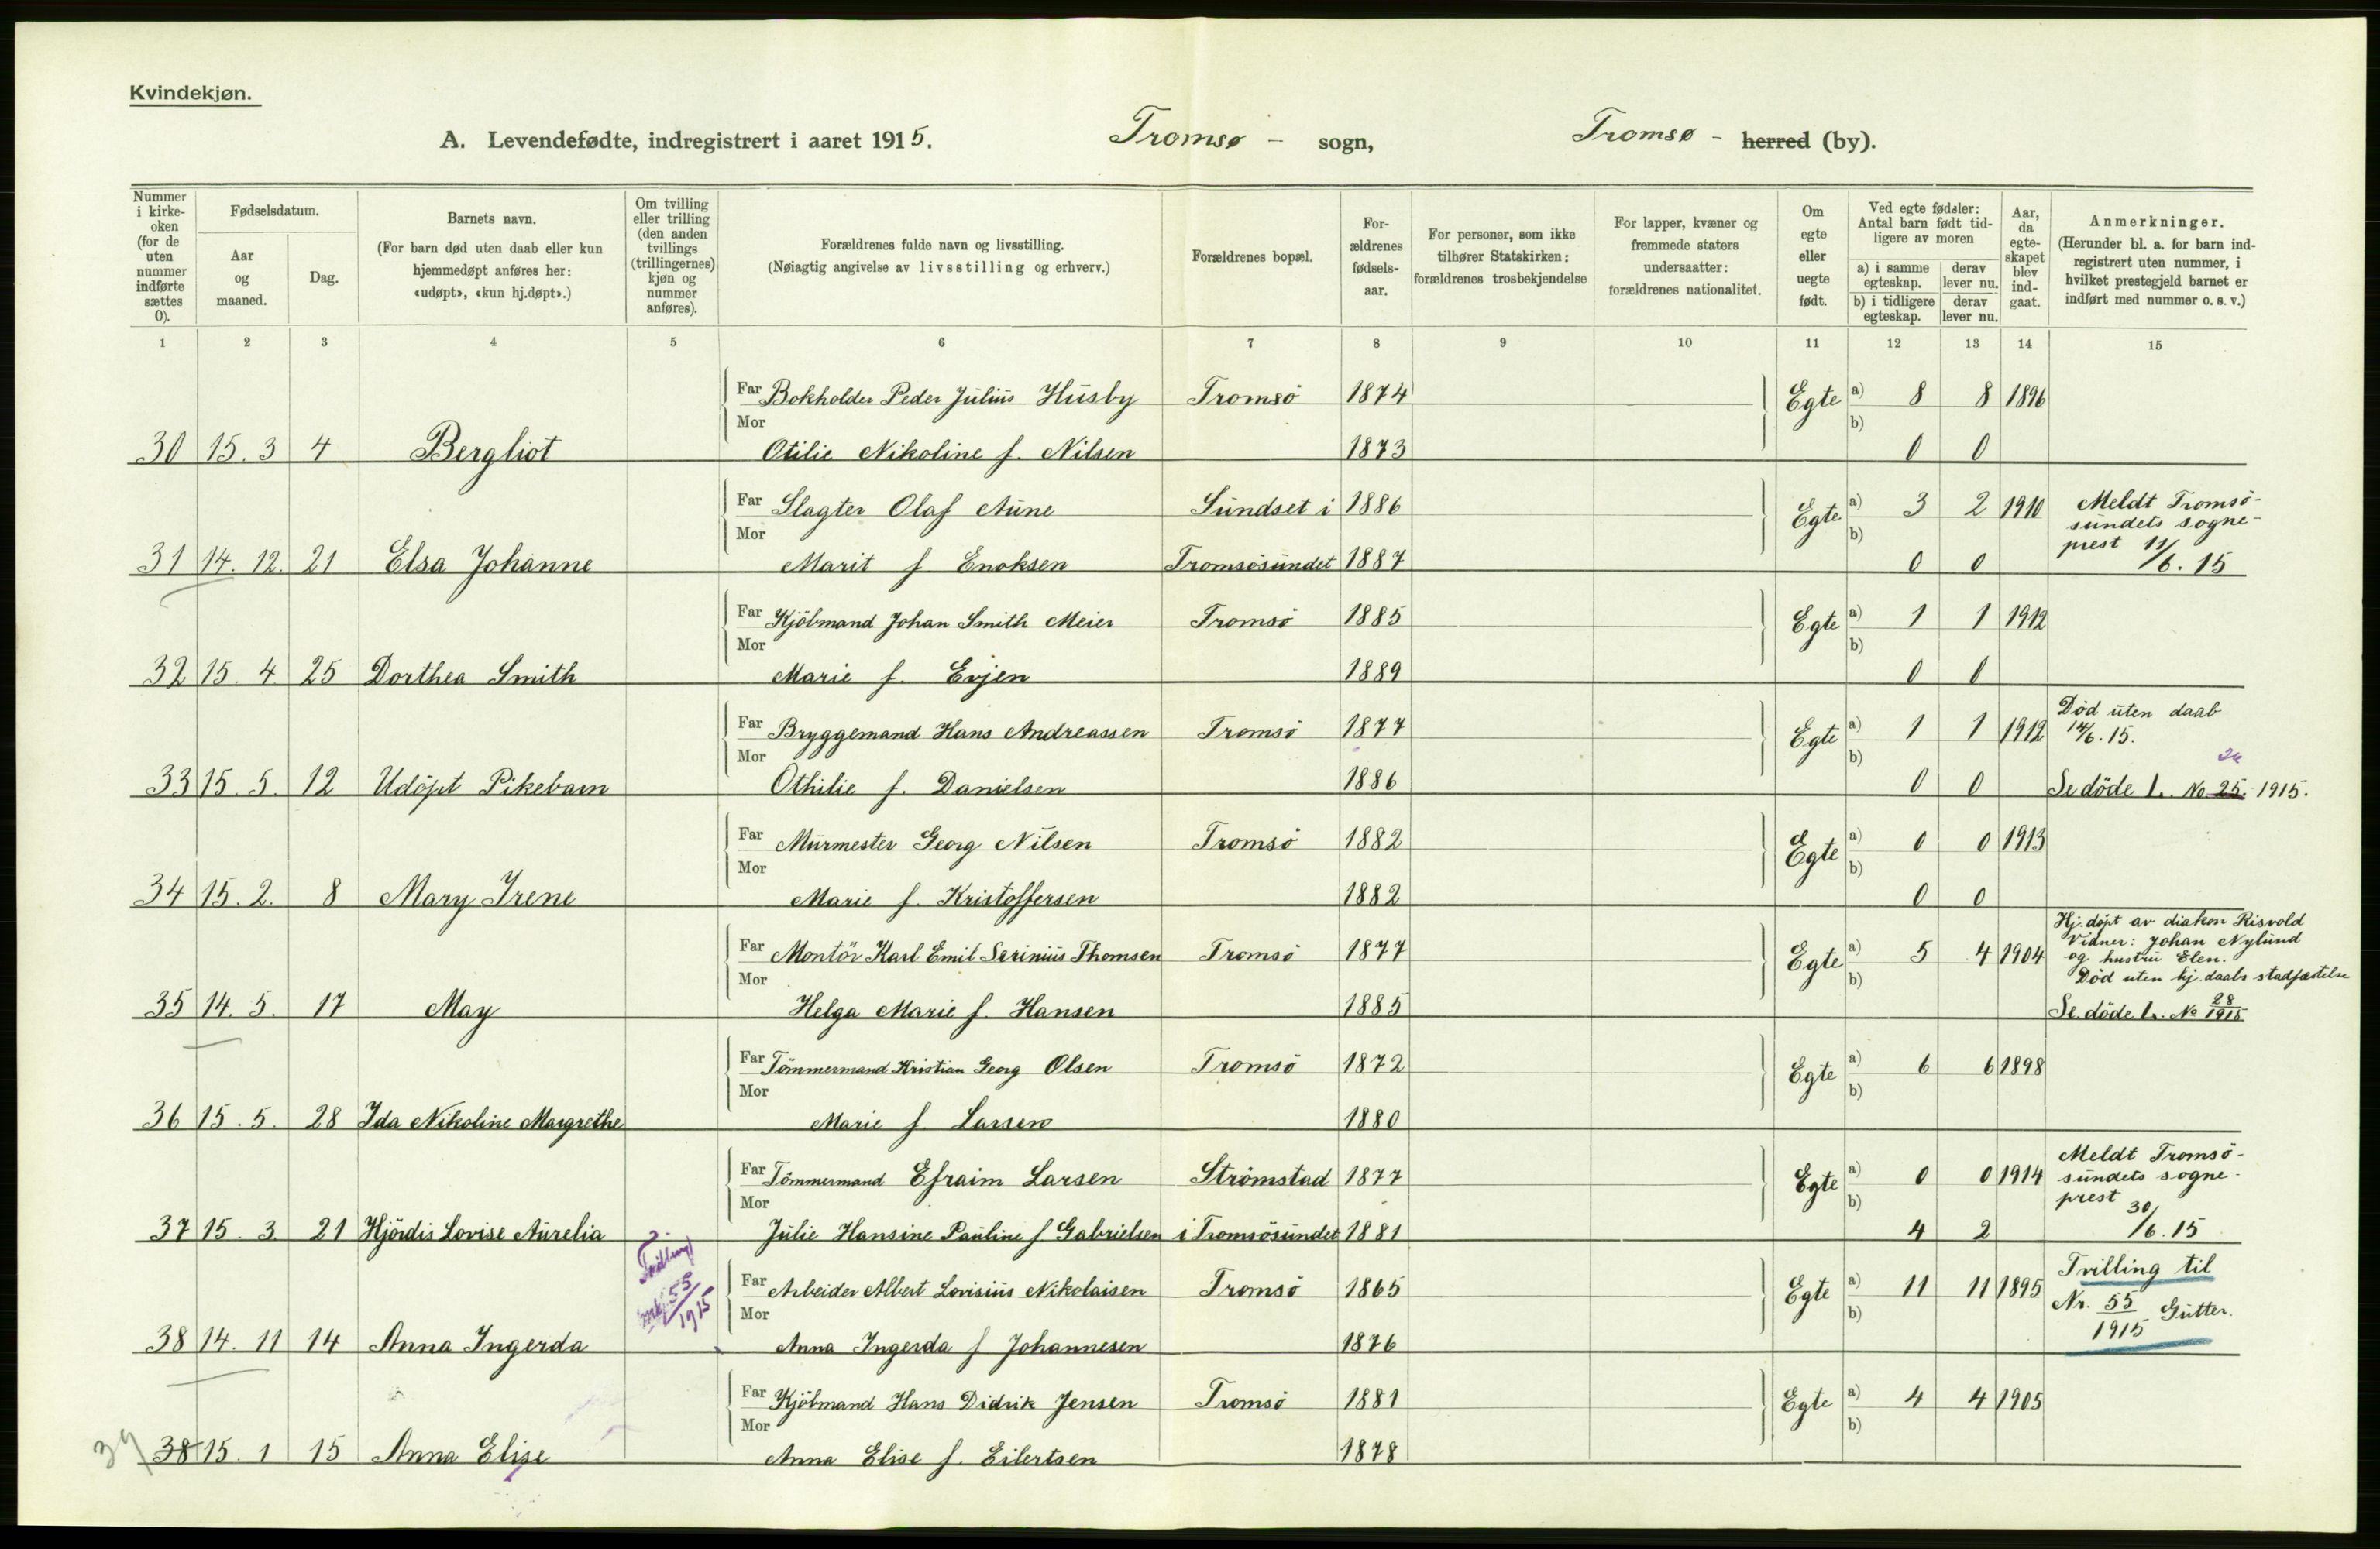 Kvindekjøn.
A. Levendefødte, indregistrert i aaret 1915. Tromsø - sogn, Tromsø - herred (by).
Nummer i kirke- oken (for de uten nummer indførte sættes 0).
Fødselsdatum.
Aar og maaned.
Dag.
Barnets navn.
(For barn død uten daab eller kun hjemmedøpt anføres her: «udøpt», «kun hj.døpt».)
Om tvilling eller trilling (den anden tvillings (trillingernes) kjøn og nummer anføres).
Forældrenes fulde navn og livsstilling.
(Nøiagtig angivelse av livsstilling og erhverv.)
Forældrenes bopæl.
For- ældrenes fødsels- aar.
For personer, som ikke tilhører Statskirken: forældrenes trosbekjendelse
For lapper, kvæner og fremmede staters undersaatter: forældrenes nationalitet.
Om egte eller uegte født.
Ved egte fødsler: Antal barn født tid- ligere av moren
a) i samme egteskap. derav lever nu.
b) i tidligere egteskap. derav lever nu.
Aar, da egte- skapet blev ind- gaat.
Anmerkninger.
(Herunder bl. a. for barn ind- registrert uten nummer, i hvilket prestegjeld barnet er indført med nummer o. s. v.)
1 2 3 4 5 6 7 8 9 10 11 12 13 14 15
Far Bokholder Peder Julius Husby Tromsö 1874 Egte a) 8 8 1896
Mor b)
30 15. 3 4 Bergliot Otilie Nikoline f. Nilsen 1873 0 0
Far Slagter Olaf Aune Sundset i 1886 Egte a) 3 2 1910 Meldt Tromsö-
Mor b) sundets sogne-
prest 11/6. 15
31 14. 12. 21 Elsa Johanne Marit f Enoksen Tromsösundet 1887 0 0
Far Kjöbmand Johan Smith Meier Tromsö 1885 Egte a) 1 1 1912
Mor b)
32 15. 4 25 Dorthea Smith Marie f. Evjen 1889 0 0
Død uten daab
Far Bryggemand Hans Andreassen Tromsö 1877 Egte a) 1 1 1912 14/6. 15.
Mor b) 26
33 15. 5. 12 Udöpt Pikebarn Othilie f. Danielsen 1886 0 0 Se döde L. No 25. 1915.
Far Murmester Georg Nilsen Tromsö 1882 Egte a) 0 0 1913
Mor b)
34 15. 2. 8 Mary Irene Marie f. Kristoffersen 1882 0 0
Hj. döpt av diakon Risvold
Vidner: Johan Nylund
Far Montör Karl Emil Serinius Thomsen Tromsö 1877 Egte a) 5 4 1904 og hustru Elen.
Mor b) Död uten hj. daabs stadfæstelse
35 14. 5. 17 May Helga Marie f. Hansen 1885 Se. döde L. No 28/1915
Far Tömmermand Kristian Georg Olsen Tromsö 1872 Egte a) 6 6 1898
Mor b)
36 15. 5. 28 Ida Nikoline Margrethe Marie f. Larsen 1880
Meldt Tromsö-
Far Tömmermand Efraim Larsen Strömstad 1877 Egte a) 0 0 1914 sundets sogne-
Mor b) prest
30/6. 15
37 15. 3. 21 Hjördis Lovise Aurelia Julie Hansine Pauline f Gabrielsen i Tromsösundet 1881 4 2
Far Arbeider Albert Lovisius Nikolaisen Tromsö 1865 Egte a) 11 11 1895 Tvilling til
Mor b) Nr. 55/1915 Gutter.
55/1915
38 14. 11 14 Anna Ingerda Anna Ingerda f Johannesen 1876
Far Kjöbmand Hans Didrik Jensen Tromsö 1881 Egte a) 4 4 1905
Mor b)
39 38 15. 1 15 Anna Elise Anna Elise f. Eilertsen 1878